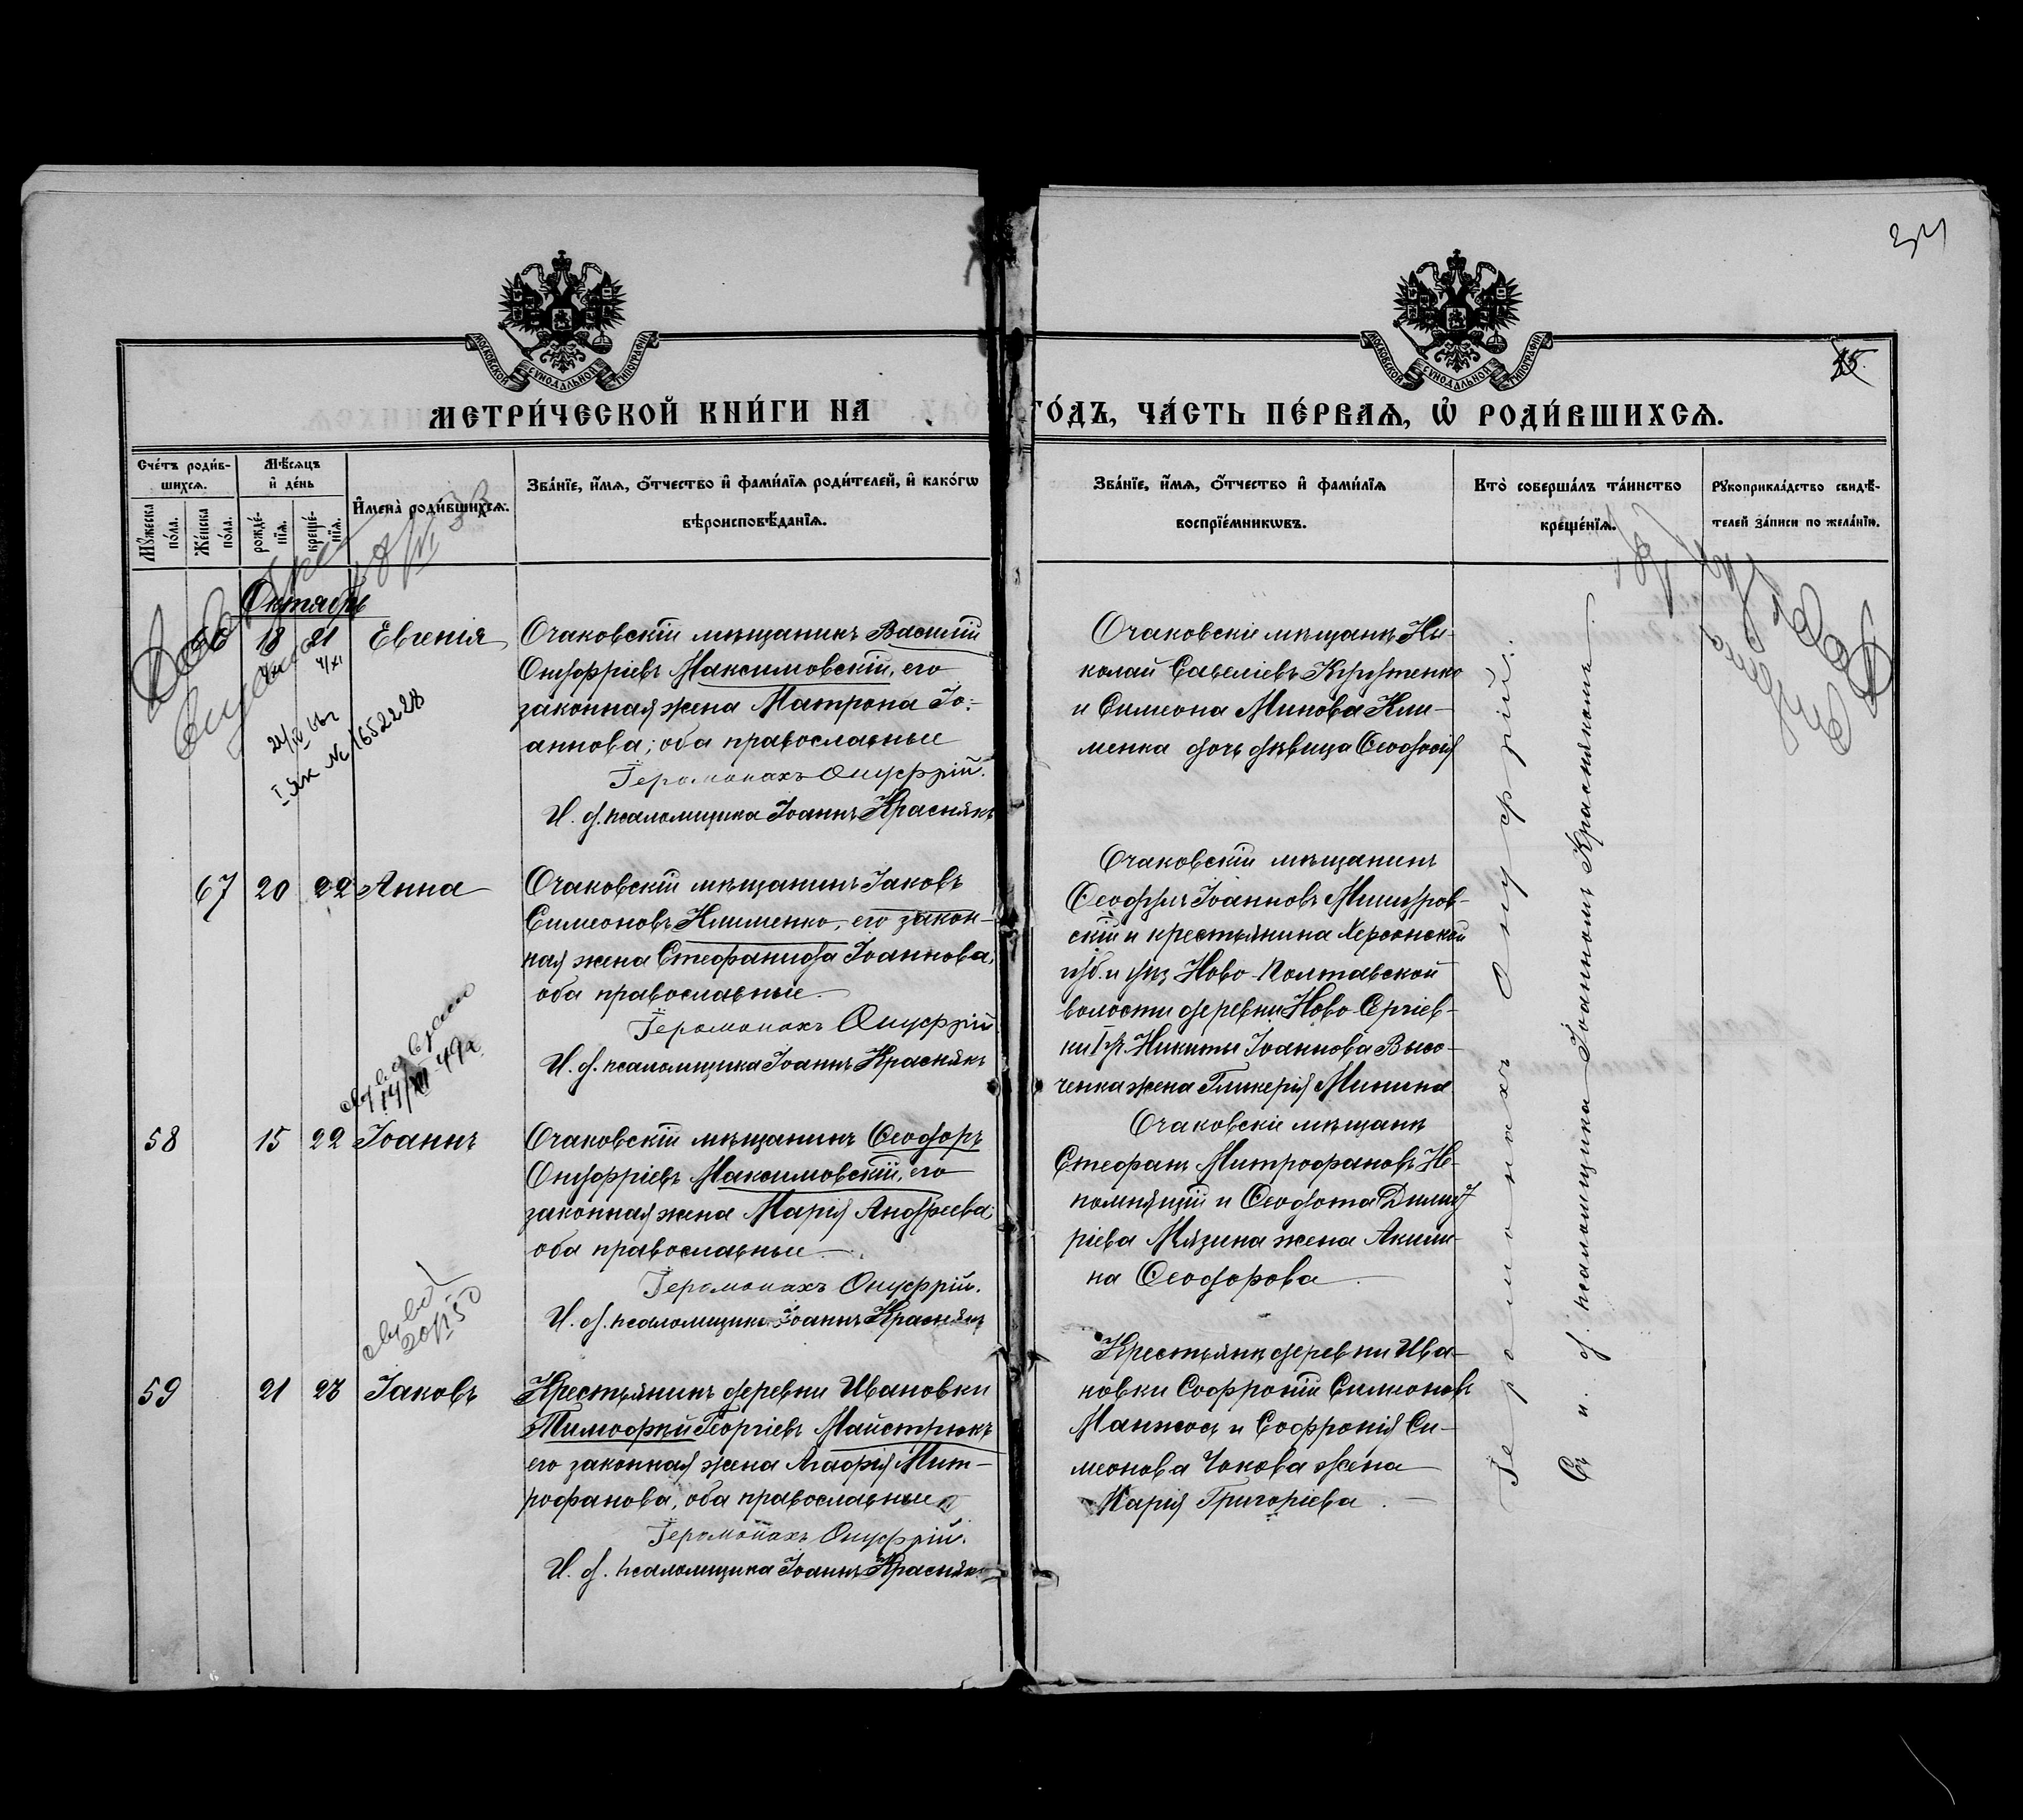 34
МОСКОВСКОЙ СѴНОДАЛЬНОЙ ТИПОГРАФІИ
МОСКОВСКОЙ СѴНОДАЛЬНОЙ ТИПОГРАФІИ
МЕТРИ́ЧЕСКОЙ КНИ́ГИ НА
ГО́ДЪ, ЧА́СТЬ ПЕ́РВАѦ, Ѡ҆ РОДИ́ВШИХСѦ.
Сче́тъ роди́в-
шихсѧ.
Мꙋ́жеска
по́ла.
Же́нска
по́ла.
Мѣ́сѧцъ
и҆ де́нь
рожде́-
нїѧ.
креще́-
нїѧ.
И҆мена̀ роди́вшихсѧ.
Зва́нїе, и҆́мѧ, ѻ҆́тчество и҆ фами́лїѧ роди́телей, и҆ како́гѡ
вѣроисповѣ́данїѧ.
Зва́нїе, и҆́мѧ, ѻ҆́тчество и҆ фами́лїѧ
воспрїе́мникѡвъ.
Кто̀ соверша́лъ та́инство
креще́нїѧ.
Рꙋкоприкла́дство свидѣ́-
телей за́писи по жела́нїю.
Октябрь
18 21 Евгенія
Очаковскій мѣщанинъ Василій
Онуфріевъ Максимовскій, его
законная жена Матрона Іо-
аннова; оба православные
Іеромонахъ Онуфрій.
И. д. псаломщика Іоаннъ Краснякъ
Очаковскіе мѣщане Ни-
колай Савеліевъ
и Симеона Минова Кли-
менка дочь дѣвица Ѳеодосія
№ 1652228
67 20 22 Анна
Очаковскій мѣщанинъ Іаковъ
Симеоновъ Клименко, его закон-
ная жена Стефанида Іоаннова,
оба православные.
Іеромонахъ Онуфрій
И. д. псаломщика Іоаннъ Краснякъ
Очаковскій мѣщанинъ
Іоанновъ
скій и крестьянина Херсонской
губ. и уѣз Ново-Полтавской
волости деревни Ново-Сергіев-
ки Никиты Іоаннова Высо-
ченка жена Гликерія Минина
58 15 22 Іоаннъ
Очаковскій мѣщанинъ Ѳеодоръ
Онуфріевъ Максимовскій, его
законная жена Марія Андреева;
оба православные
Іеромонахъ Онуфрій.
И. д. псаломщика Іоаннъ Краснякъ
Очаковскіе мѣщане
Стефанъ Митрофановъ Не-
помнящій и Ѳеодота Димит
ріева Мязина жена Акили-
на Ѳеодорова
59 21 23 Іаковъ
Крестьянинъ деревни Ивановки
Тимофей Георгіевъ Майстрюкъ
его законная жена Агафія Мит-
рофанова, оба православные
Іеромонахъ Онуфрій.
И. д. псаломщика Іоаннъ Краснякъ
Крестьяне деревни Ива-
новки Софроній Симеоновъ
Манжосъ и Софронія Си-
меонова Чокова жена
Марія Григоріева
Іеромонахъ Онуфрій.
Съ и. д. псаломщика Іоанномъ Краснякомъ